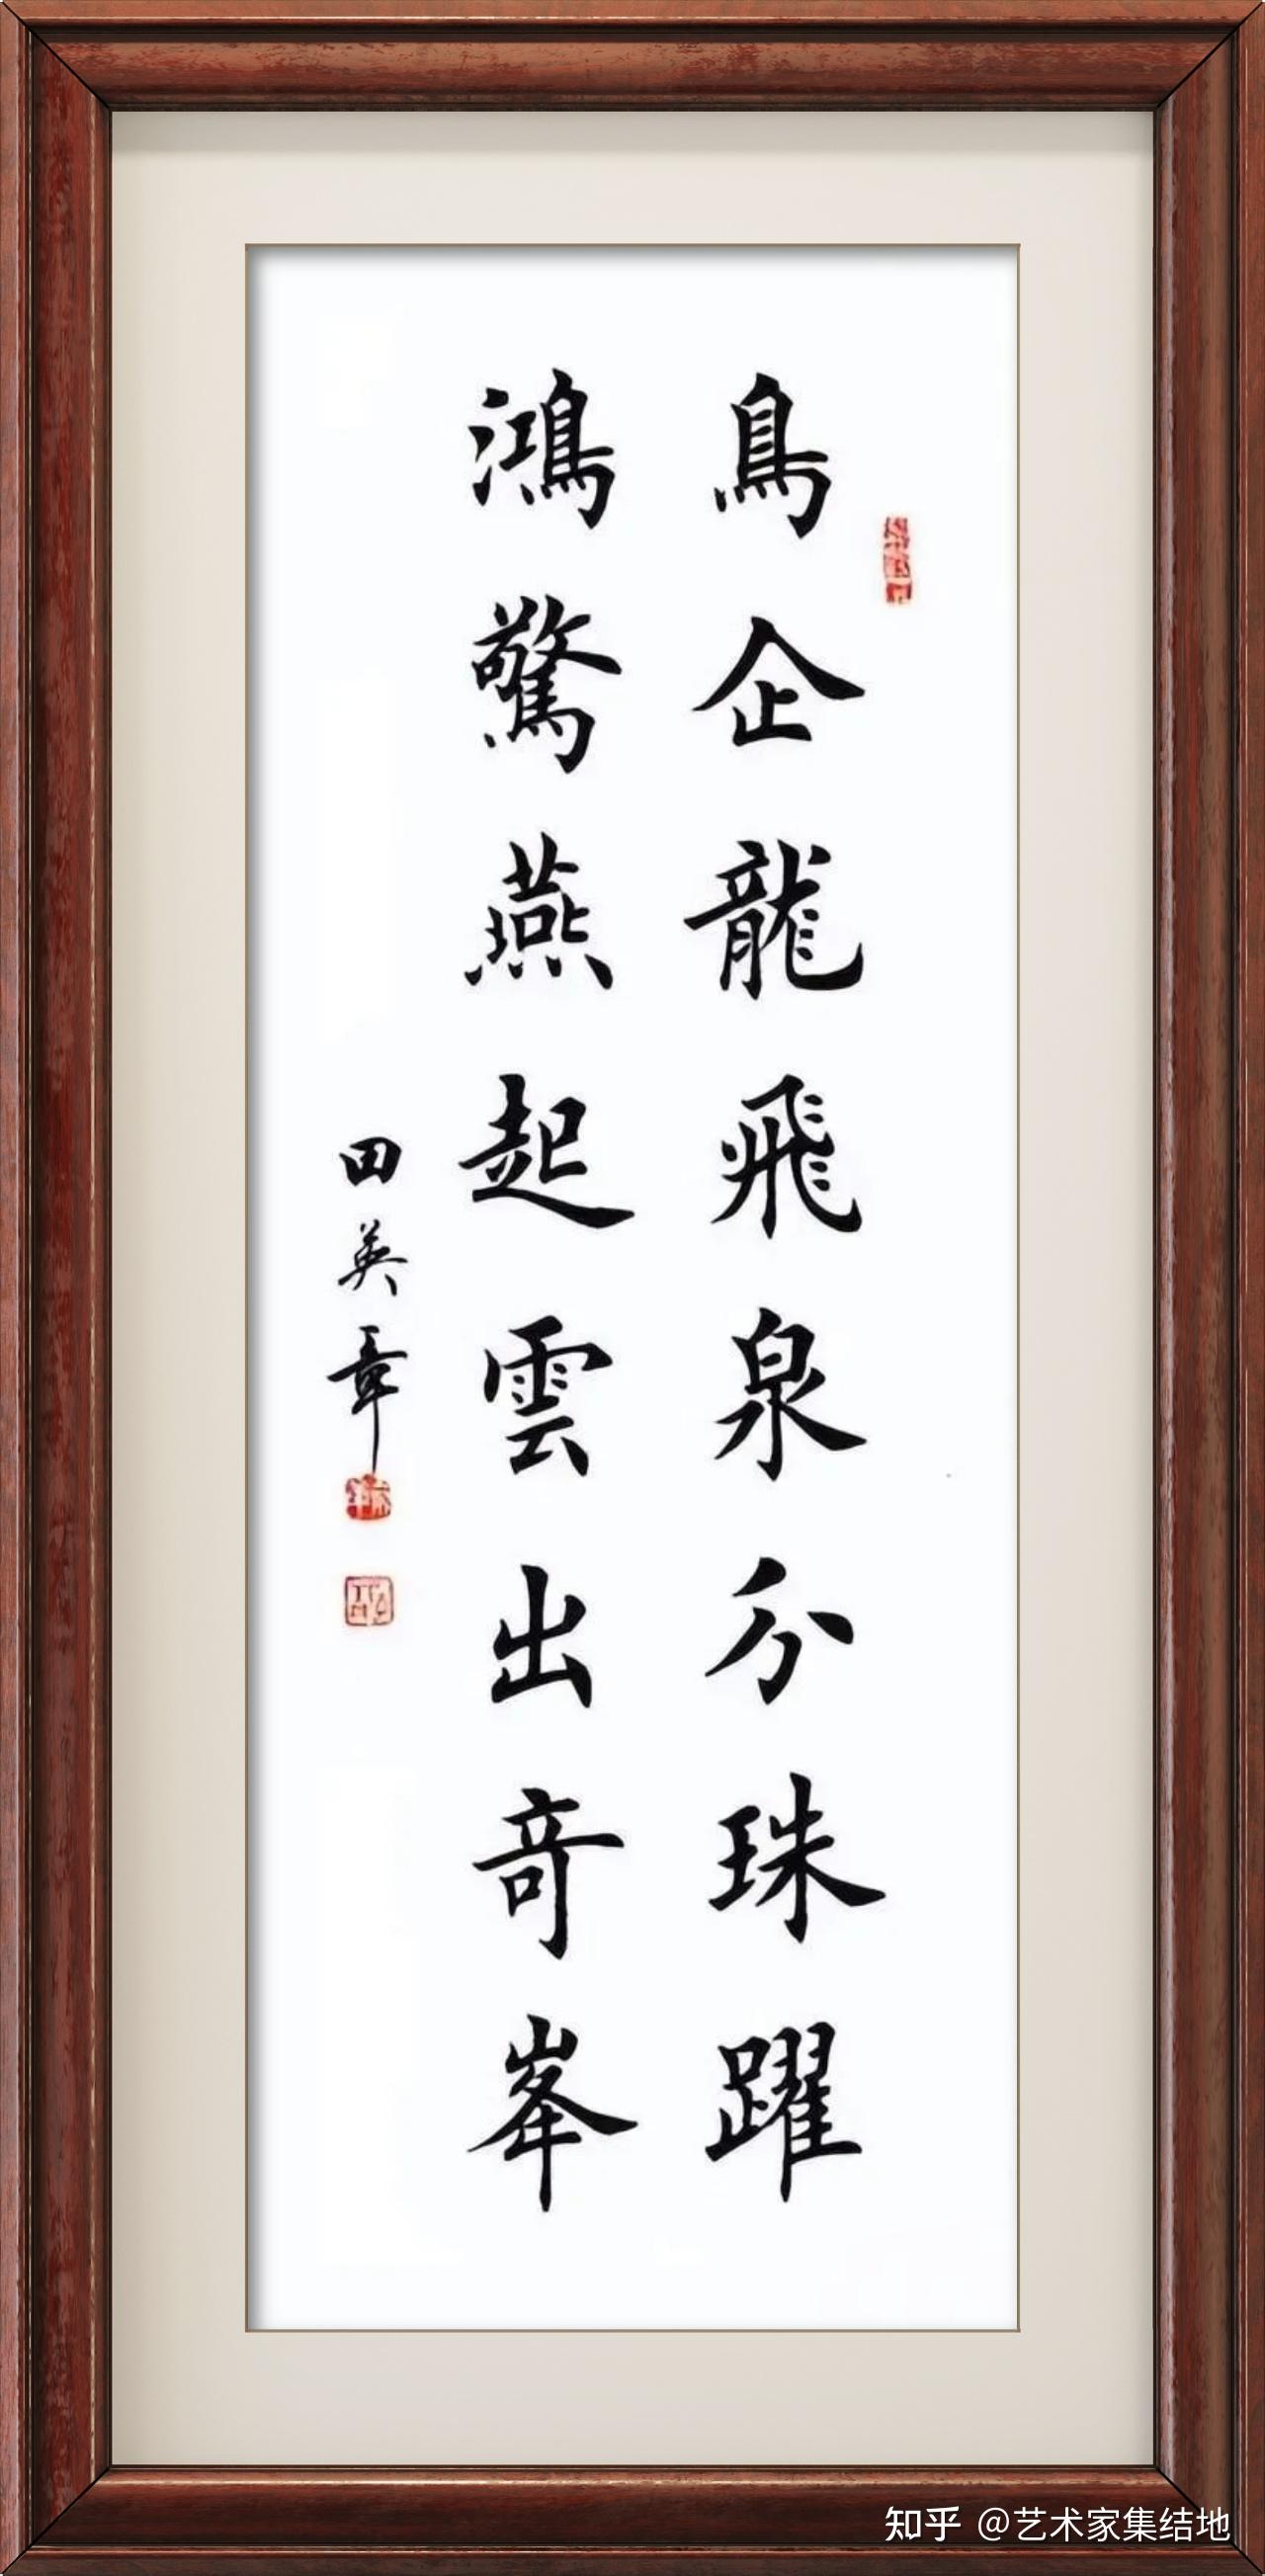 鳥企龍飛泉分珠躍
鴻驚燕起雲出奇峯
田英章
知乎 @艺术家集结地